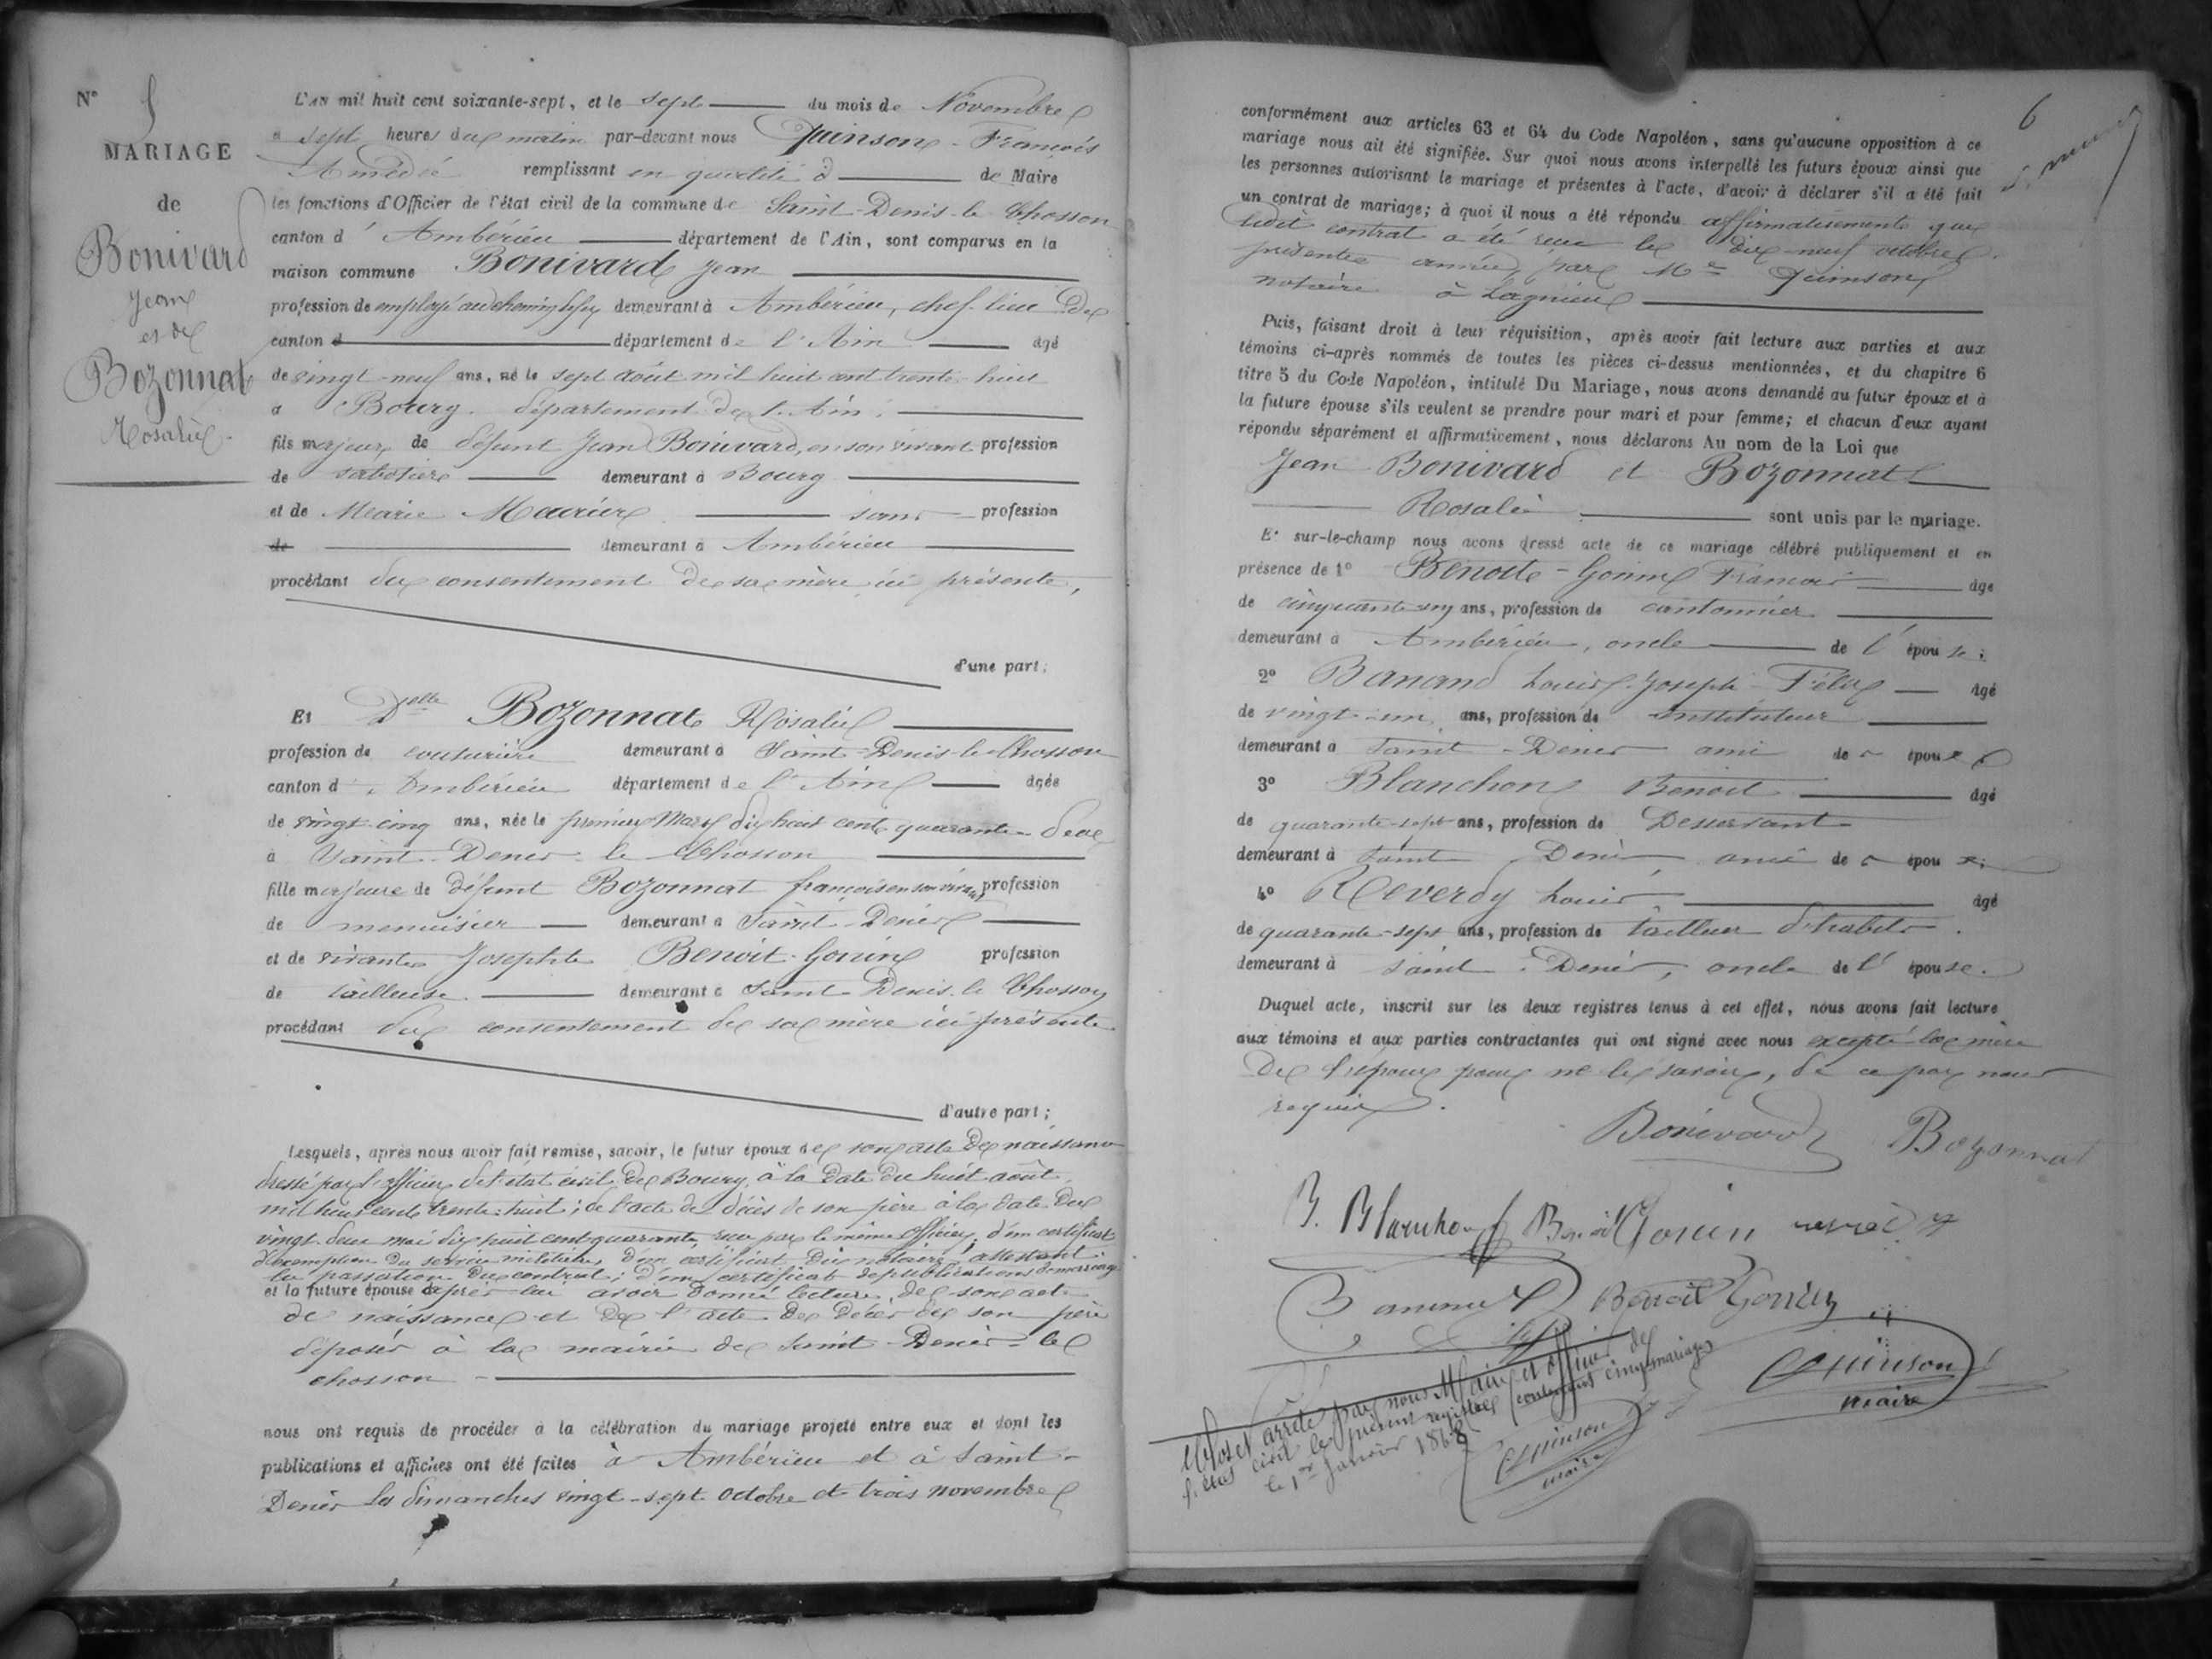 N° 5
MARIAGE
de
Bonivard
Jean
et de
Bozonnat
Rosalie
L'AN mil huit cent soixante-sept, et le sept du mois de Novembre
à sept heures du matin par-devant nous Quinson François
Amédée remplissant en qualité d de Maire
les fonctions d'Officier de l'état civil de la commune de Saint Denis le Chosson
canton d'Ambérieu département de l'Ain, sont comparus en la
maison commune Bonivard Jean
profession de employé au chemin de fer demeurant à Ambérieu, chef-lieu de
canton d département de l'Ain âgé
de vingt-neuf ans, né le sept août mil huit cent trente-huit
à Bourg département de l'Ain
fils majeur de défunt Jean Bonivard, en son vivant profession
de sabotier demeurant à Bourg
et de Marie Maurier sans profession
de demeurant à Ambérieu
procédant du consentement de sa mère ici présente,
d'une part;
Et Delle Bozonnat Rosalie
profession de couturière demeurant à Saint-Denis-le-Chosson
canton d'Ambérieu département de l'Ain âgée
de vingt-cinq ans, née le premier Mars dix huit cent quarante-deux
à Saint-Denis-le-Chosson
fille majeure de défunt Bozonnat françois en son vivant profession
de menuisier demeurant à Saint-Denis
et de vivante Josephte Benoit-Gonin profession
de tailleuse demeurant à Saint-Denis-le Chosson
procédant du consentement de sa mère ici présente
d'autre part;
Lesquels, après nous avoir fait remise, savoir, le futur époux de son acte de naissance
dressé par l'officier de l'état civil de Bourg, à la date du huit août
mil huit cent trente-huit; de l'acte de décès de son père à la date du
vingt-deux mai dix huit cent quarante, reçu par le même officier, d'un certificat
d'exemption du service militaire, d'un certificat du notaire, attestant
la passation du contrat; d'un certificat de publications de mariage
et la future épouse après lui avoir donné lecture de son acte
de naissance et de l'acte de décès de son père
déposés à la mairie de Saint-Denis-le
chosson
nous ont requis de procéder à la célébration du mariage projeté entre eux et dont les
publications et affiches ont été faites à Ambérieu et à Saint-
Denis les dimanches vingt-sept Octobre et trois novembre
6
conformément aux articles 63 et 64 du Code Napoléon, sans qu'aucune opposition à ce
mariage nous ait été signifiée. Sur quoi nous avons interpellé les futurs époux ainsi que
les personnes autorisant le mariage et présentes à l'acte, d'avoir à déclarer s'il a été fait
un contrat de mariage; à quoi il nous a été répondu affirmativement que
ledit contrat a été reçu le dix-neuf octobre
présente année, par Me Quinson
notaire à Lagnieu
Puis, faisant droit à leur réquisition, après avoir fait lecture aux parties et aux
témoins ci-après nommés de toutes les pièces ci-dessus mentionnées, et du chapitre 6
titre 5 du Code Napoléon, intitulé Du Mariage, nous avons demandé au futur époux et à
la future épouse s'ils veulent se prendre pour mari et pour femme; et chacun d'eux ayant
répondu séparément et affirmativement, nous déclarons Au nom de la Loi que
Jean Bonivard et Bozonnat
Rosalie sont unis par le mariage.
Et sur-le-champ nous avons dressé acte de ce mariage célébré publiquement et en
présence de 1° Benoite-Gonin François âgé
de cinquante ans, profession de cantonnier
demeurant à Ambérieu, oncle de l'épouse;
2° Banand Louis Joseph Félix âgé
de vingt-un ans, profession de instituteur
demeurant à Saint-Denis ami de époux
3° Blanchon Benoit âgé
de quarante-sept ans, profession de Desservant
demeurant à Saint Denis, ami de époux;
4° Reverdy Louis âgé
de quarante-sept ans, profession de tailleur d'habits
demeurant à Saint-Denis, oncle de l'épouse.
Duquel acte, inscrit sur les deux registres tenus à cet effet, nous avons fait lecture
aux témoins et aux parties contractantes qui ont signé avec nous excepté la mère
de l'époux pour ne le savoir, de ce par nous
requis.
Bonivard Bozonnat
B. Blanchon Benoit Gonin
Benoit Gonin
Quinson
maire
Clos et arrêté par nous Maire et officier de
l'état civil le présent registre contenant cinq mariages
le 1er Janvier 1868
Quinson
maire